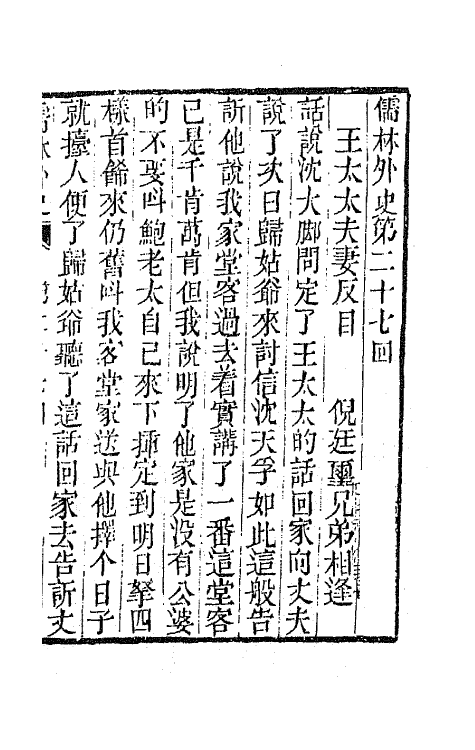 儒林外史第二十七回
王太太夫妻反目　倪廷璽兄弟相逢
話說沈大脚問定了王太太的話回家向丈夫
說了次日歸姑爺來討信沈天孚如此這般告
訴他說我家堂客過去着實講了一番這堂客
已是千肯萬肯但我說明了他家是沒有公婆
的不要叫鮑老太自己來下揷定到明日拏四
樣首餙來仍舊叫我家堂客送與他擇个日子
就擡人便了歸姑爺聽了這話回家去告訴丈